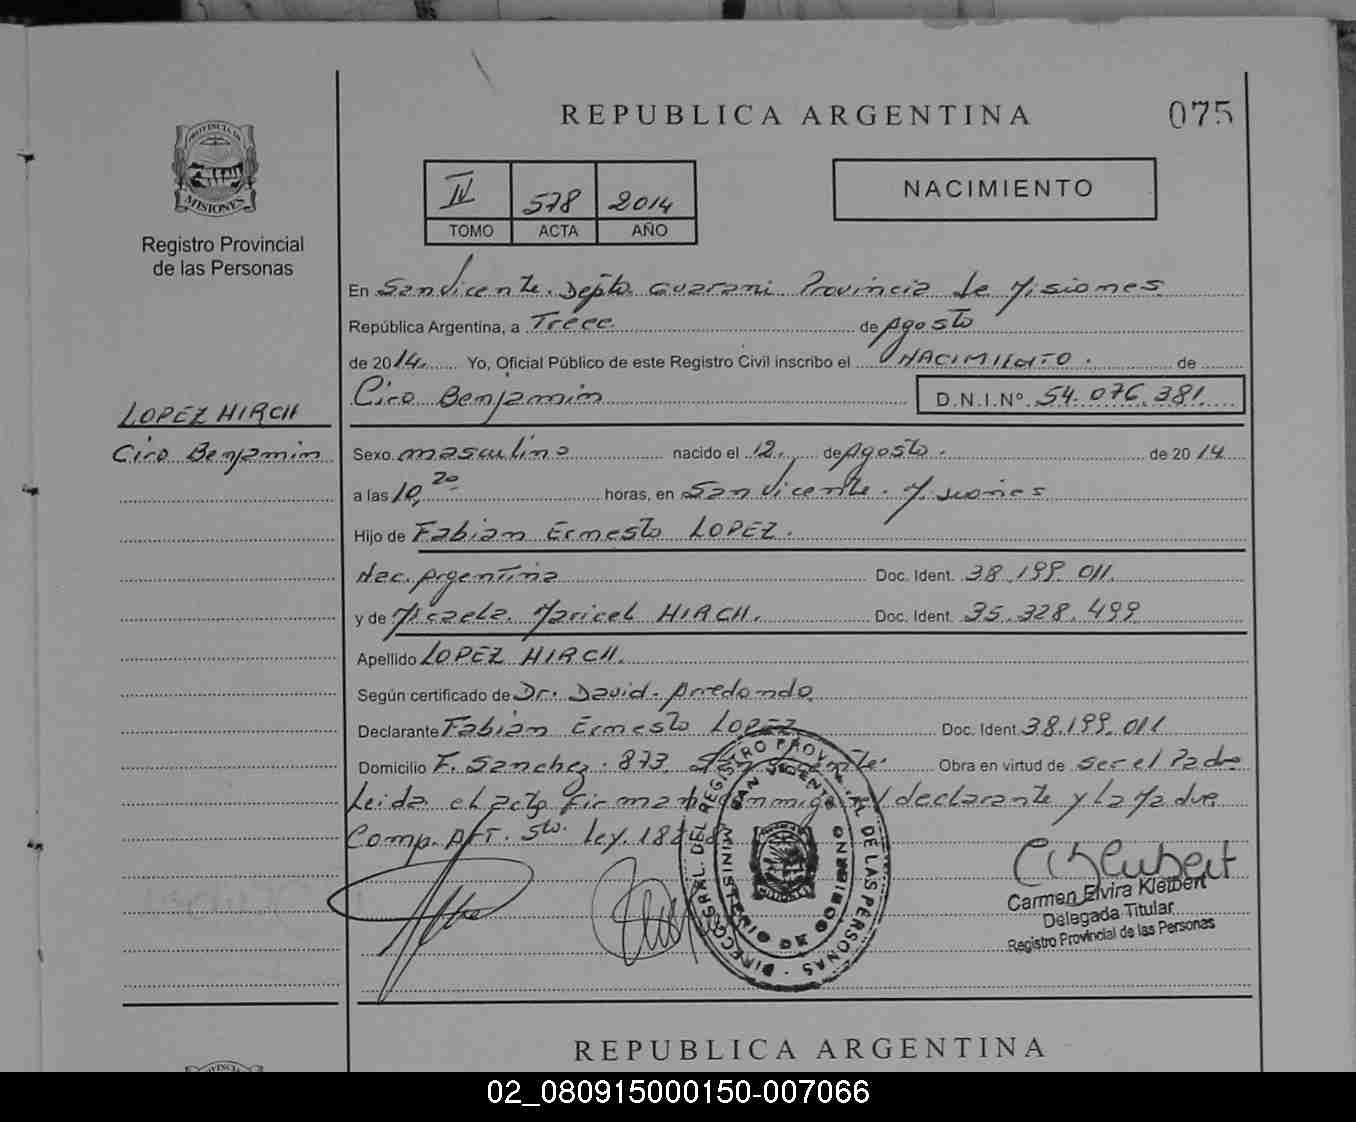 REPUBLICA ARGENTINA
075
PROVINCIA DE
MISIONES
Registro Provincial
de las Personas
IV 578 2014
TOMO ACTA AÑO
NACIMIENTO
En San Vicente. Depto Guarani Provincia de Misiones
República Argentina, a Trece de Agosto
de 2014. Yo, Oficial Público de este Registro Civil inscribo el NACIMIENTO. de
Ciro Benjamin D.N.I.Nº 54.076.381
LOPEZ HIRCH
Ciro Benjamin
Sexo masculino nacido el 12 de Agosto. de 2014
a las 10,20 horas, en San Vicente. Misiones
Hijo de Fabian Ernesto LOPEZ.
Nac. Argentina Doc. Ident. 38.199.011.
y de Micaela Maricel HIRCH. Doc. Ident. 35.328.499
Apellido LOPEZ HIRCH.
Según certificado de Dr. David Arredondo
Declarante Fabian Ernesto LOPEZ Doc. Ident. 38.199.011
Domicilio F. Sanchez. 873. San Vicente. Obra en virtud de ser el Padre
Leida el acta firman conmigo el declarante y la Madre
Comp. Sto. Ley.
DIRECC. GRAL. DEL REGISTRO PROVINCIAL DE LAS PERSONAS
SAN VICENTE
MINISTERIO DE GOBIERNO
Carmen Elvira Kleibert
Delegada Titular
Registro Provincial de las Personas
REPUBLICA ARGENTINA
02_080915000150-007066